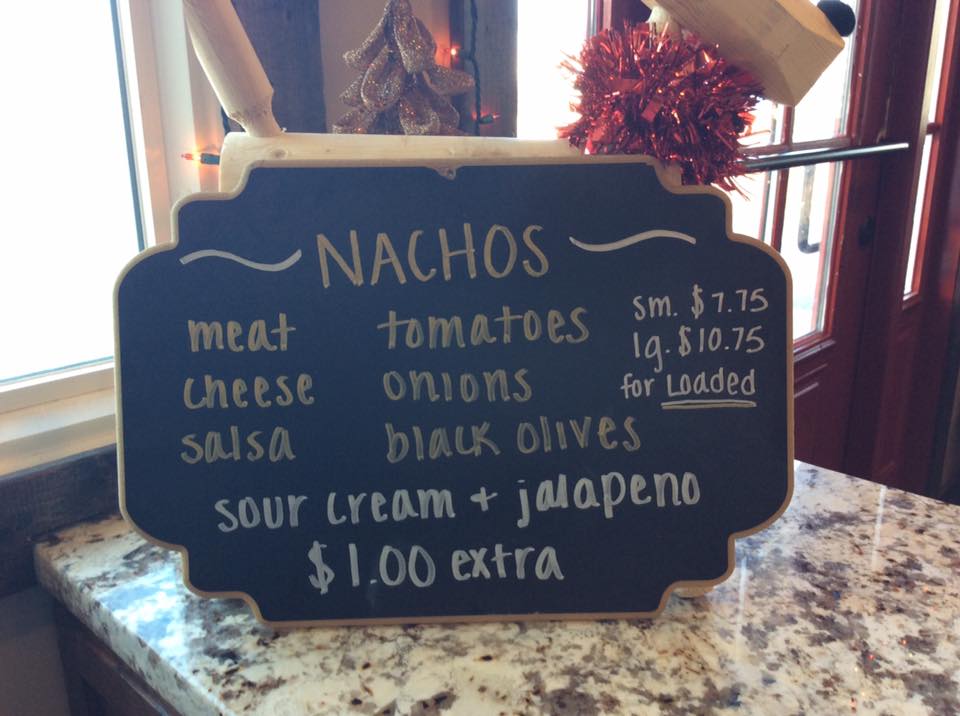 NACHOS
meat tomatoes sm. $7.75
cheese onions lg. $10.75
salsa black olives for Loaded
sour cream + jalapeno
$1.00 extra